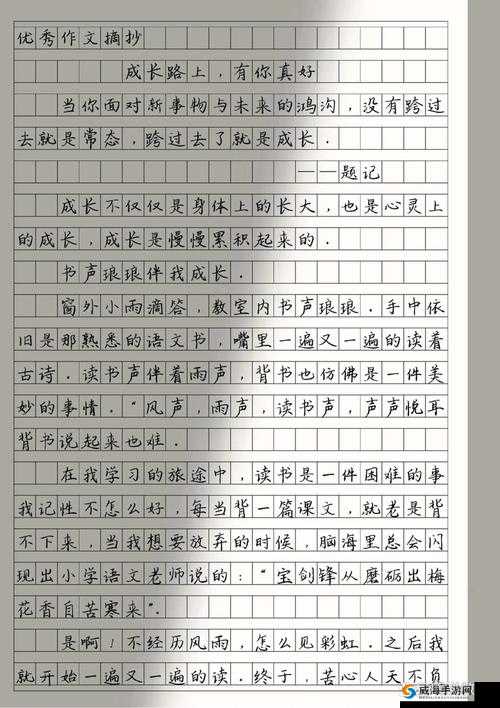 优秀作文摘抄
成长路上，有你真好
当你面对新事物与未来的鸿沟，没有跨过
去就是常态，跨过去了就是成长．
——题记
成长不仅仅是身体上的长大，也是心灵上
的成长，成长是慢慢累积起来的．
书声琅琅伴我成长．
窗外小雨滴答，教室内书声琅琅．手中依
旧是那熟悉的语文书，嘴里一遍又一遍的读着
古诗．读书声伴着雨声，背书也仿佛是一件美
妙的事情．“风声，雨声，读书声，声声悦耳
背书说起来也难．
在我学习的旅途中，读书是一件困难的事
我记性不怎么好，每当背一篇课文，就老是背
不下来，当我想要放弃的时候，脑海里总会闪
现出小学语文老师说的：“宝剑锋从磨砺出梅
花香自苦寒来”．
是啊！不经历风雨，怎么见彩虹．之后我
就开始一遍又一遍的读．终于，苦心人天不负
威海手游网